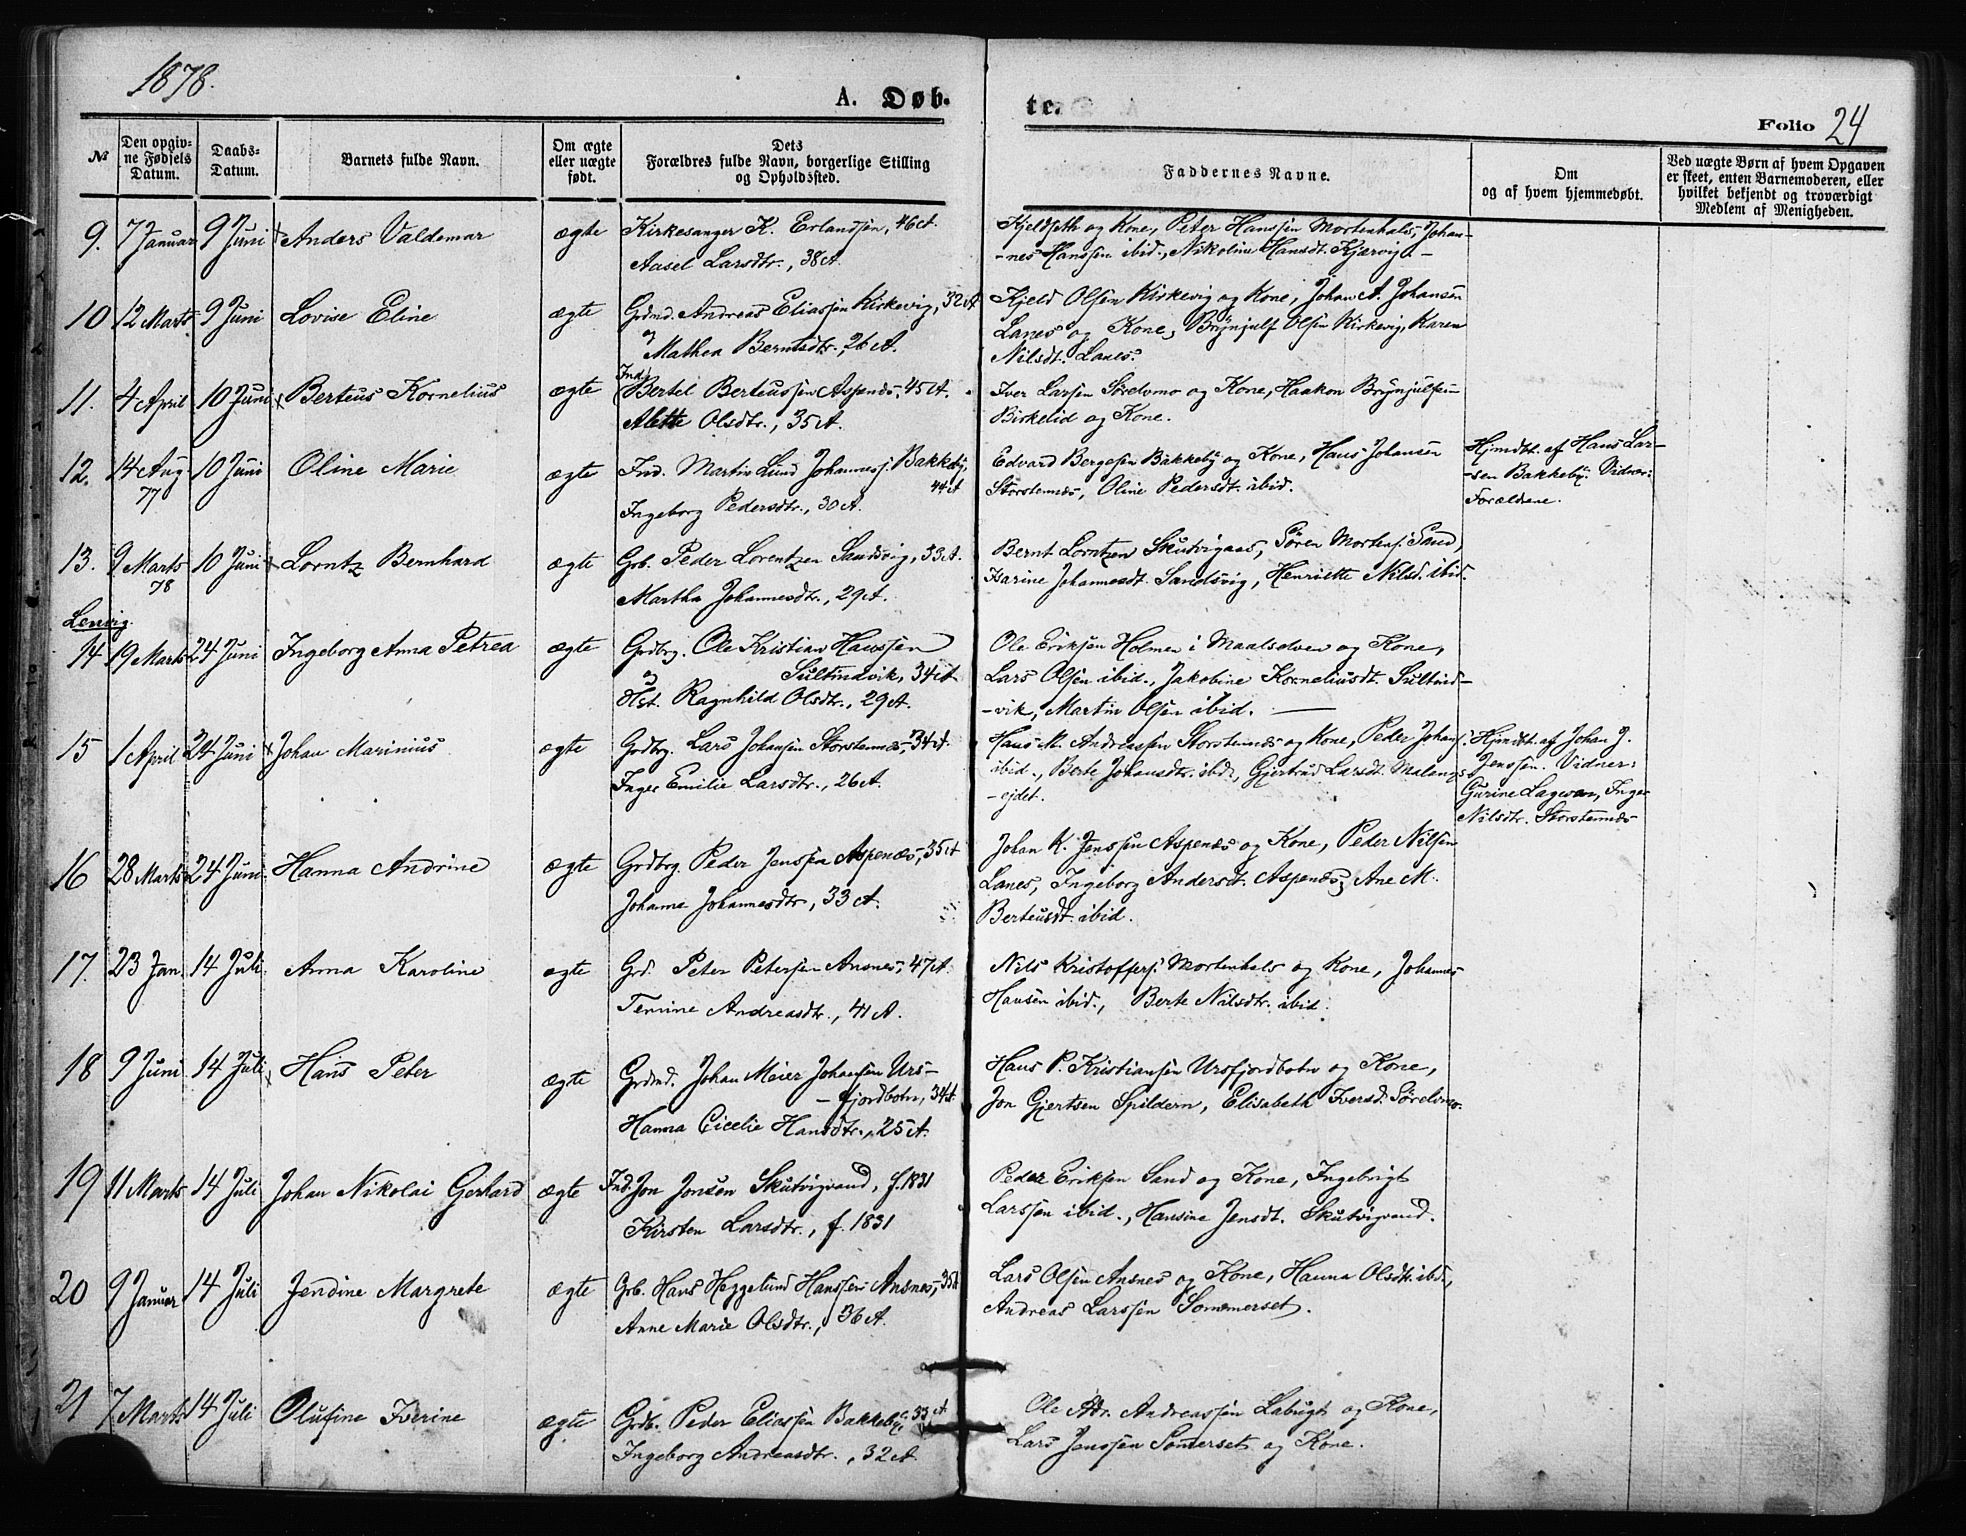 1878.
A. Døb-
te.
Folio 24
№
Den opgiv-
ne Fødsels
Datum.
Daabs-
Datum.
Barnets fulde Navn.
Om ægte
eller uægte
født.
Dets
Forældres fulde Navn, borgerlige Stilling
og Opholdssted.
Faddernes Navne.
Om
og af hvem hjemmedøbt.
Ved uægte Børn af hvem Opgaven
er skeet, enten Barnemoderen, eller
hvilket bekjendt og troværdigt
Medlem af Menigheden.
9. 7 Januar 9 Juni Anders Valdemar ægte Kirkesanger K. Erlandsen, 46 A.
Aasel Larsdtr., 38 A.
Kjeldseth og Kone, Peter Hanssen Mortenhals, Johan-
-nes Hanssen ibid., Nikoline Hansdt. Kjærvig. -
10 12 Marts 9 Juni Lovise Eline ægte Grdnd. Andreas Eliassen Kirkevig, 32 A
Mathea Berntsdtr., 26 A.
Kjeld Olsen Kirkevig og Kone, Johan A. Johansen
Lanes og Kone, Brynjulf Olsen Kirkevig, Karen
Nilsdt. Lanes.
11. 4 April 10 Juni Berteus Kornelius ægte Ind. Bertel Berteussen Aspenes, 45 A.
Alette Olsdtr., 35 A.
Iver Larsen Sørelvmo og Kone, Haakon Brynjulfsen
Birkelid og Kone.
12. 14 Aug 10 Juni Oline Marie ægte Ind. Martin Lund Johanness. Bakkeby,
77
44 A
Ingeborg Pedersdtr., 30 A.
Edvard Bergesen Bakkeby og Kone, Hans Johansen
Storstennæs, Oline Pedersdt. ibid.
Hjmdbt. af Hans Lar-
-sen Bakkeby. Vidner:
Forældrene.
13. 9 Marts 10 Juni Lorntz Bernhard ægte Grb. Peder Lorentzen Sandsvig, 33 A.
78
Martha Johannesdtr., 29 A.
Bernt Lorntzen Skutvigaas, Søren Mortens. Sand,
Karine Johannesdt. Sandsvig, Henriette Nilsd. ibid.
Lenvig.
14 19 Marts 24 Juni Ingeborg Anna Petrea ægte Grdbrg. Ole Kristian Hanssen
Sultindvik, 34 A
Hst. Ragnhild Olsdtr., 29 A.
Ole Eriksen Holmen i Maalselven og Kone,
Lars Olsen ibid., Jakobine Korneliusdt. Sultind-
-vik, Martin Olsen ibid.
15 1 April 24 Juni Johan Marinius ægte Grdbrg. Lars Johansen Storstennes, 34 A.
Inger Emilie Larsdtr., 26 A.
Hans M. Andreassen Storstennes og Kone, Peder Johans.
ibid., Berte Johansdtr. ibd., Gjertrud Larsdt. Malangs-
-ejdet.
Hjmdbt. af Johan J.
Jenssen. Vidner:
Gurine Lagesen, Inger
Nilsdtr. Storstennes
16 28 Marts 24 Juni Hanna Andrine ægte Grdbrg Peder Jenssen Aspenæs, 35 A
Johanna Johannesdtr, 33 A.
Johan K. Jenssen Aspenæs og Kone, Peder Nilsen
Lanes, Ingeborg Andersdt. Aspenes, Ane M.
Berteusdt. ibid.
17. 23 Jan. 14 Juli Anna Karoline ægte Grd. Peter Petersen Ansnes, 47 A.
Andreasdtr., 41 A.
Nils Kristoffers. Mortenhals og Kone, Johannes
Hansen ibid., Berte Nilsdtr. ibid.
18 9 Juni 14 Juli Hans Peter ægte Grdnd. Johan Meier Johansen Urs-
-fjordbotn, 34 A
Hanna Cicelie Hansdtr., 25 A.
Hans P. Kristiansen Ursfjordbotn og Kone,
Jon Gjertsen Spildern, Elisabeth Iversd. Sørelvmo.
19 11 Marts 14 Juli Johan Nikolai Gerhard ægte Ind. Jon Jonsen Skutvigvand, f. 1831
Kirsten Larsdtr., f. 1831
Peder Eriksen Sand og Kone, Ingebrigt
Larssen ibid., Hansine Jensdt. Skutvigvand.
20 9 Januar 14 Juli Jendine Margrete ægte Grb. Hans Heggelund Hanssen Ansnes, 35 A
Anne Marie Olsdtr., 36 A.
Lars Olsen Ansnes og Kone, Hanna Olsdtr. ibd.,
Andreas Larssen Sommerset.
21 7 Marts 14 Juli Olufine Iverine ægte Grdb. Peder Eliassen Bakkeby, 33 A
Ingeborg Andreasdtr., 32 A.
Ole Adr. Andreassen Labugt og Kone,
Lars Jenssen Somerset og Kone.